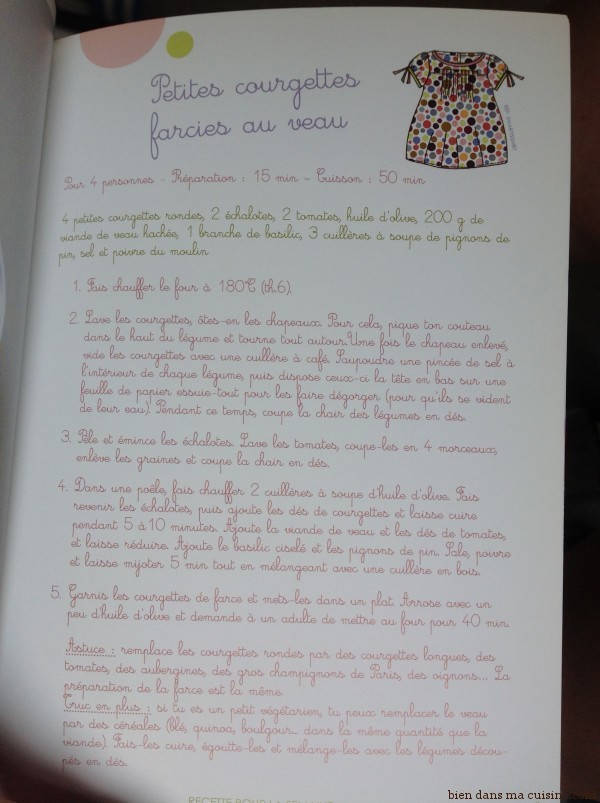 Petites courgettes
farcies au veau
Pour 4 personnes - Préparation : 15 min - Cuisson : 50 min
4 petites courgettes rondes, 2 échalotes, 2 tomates, huile d'olive, 200 g de
viande de veau hachée, 1 branche de basilic, 3 cuillères à soupe de pignons de
pin, sel et poivre du moulin
1. Fais chauffer le four à 180°C (th.6).
2. Lave les courgettes, ôtes-en les chapeaux. Pour cela, pique ton couteau
dans le haut du légume et tourne tout autour. Une fois le chapeau enlevé,
vide les courgettes avec une cuillère à café. Saupoudre une pincée de sel à
l'intérieur de chaque légume, puis dispose ceux-ci la tête en bas sur une
feuille de papier essuie-tout pour les faire dégorger (pour qu'ils se vident
de leur eau). Pendant ce temps, coupe la chair des légumes en dés.
3. Pèle et émince les échalotes. Lave les tomates, coupe-les en 4 morceaux,
enlève les graines et coupe la chair en dés.
4. Dans une poêle, fais chauffer 2 cuillères à soupe d'huile d'olive. Fais
revenir les échalotes, puis ajoute les dés de courgettes et laisse cuire
pendant 5 à 10 minutes. Ajoute la viande de veau et les dés de tomates,
et laisse réduire. Ajoute le basilic ciselé et les pignons de pin. Sale, poivre
et laisse mijoter 5 min tout en mélangeant avec une cuillère en bois.
5. Garnis les courgettes de farce et mets-les dans un plat. Arrose avec un
peu d'huile d'olive et demande à un adulte de mettre au four pour 40 min.
Astuce : remplace les courgettes rondes par des courgettes longues, des
tomates, des aubergines, des gros champignons de Paris, des oignons... La
préparation de la farce est la même.
Truc en plus : si tu es un petit végétarien, tu peux remplacer le veau
par des céréales (blé, quinoa, boulgour... dans la même quantité que la
viande). Fais-les cuire, égoutte-les et mélange-les avec les légumes décou-
pés en dés.
RECETTE POUR LA
bien dans ma cuisin